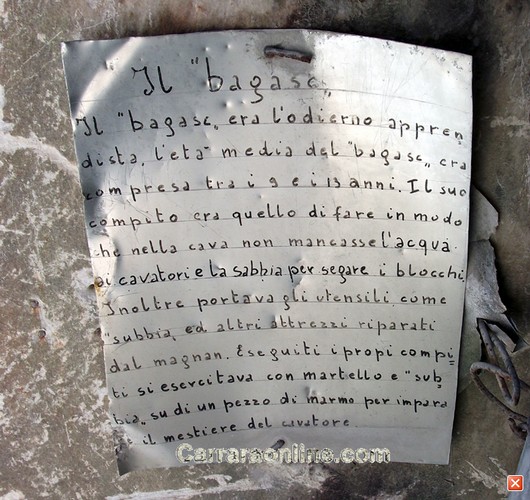 Il "bagasc„
Il "bagasc„ era l'odierno appren
dista, l'età media del "bagasc„ era
compresa tra i 9 e i 13 anni. Il suo
compito era quello di fare in modo
che nella cava non mancasse l'acqua
ai cavatori e la sabbia per segare i blocchi.
Inoltre portava gli utensili, come
"subbia„ ed altri attrezzi riparati
dal magnan. Eseguiti i propi compi
ti si esercitava con martello e "sub
bia„ su di un pezzo di marmo per impara
il mestiere del cavatore.
Carraraonline.com